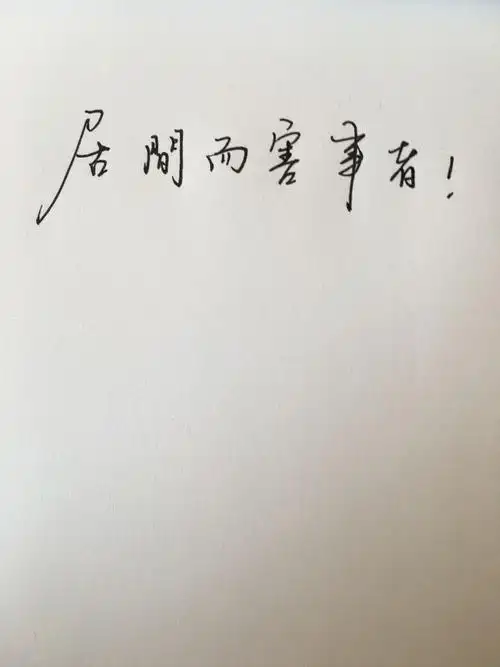 居間而害事者！